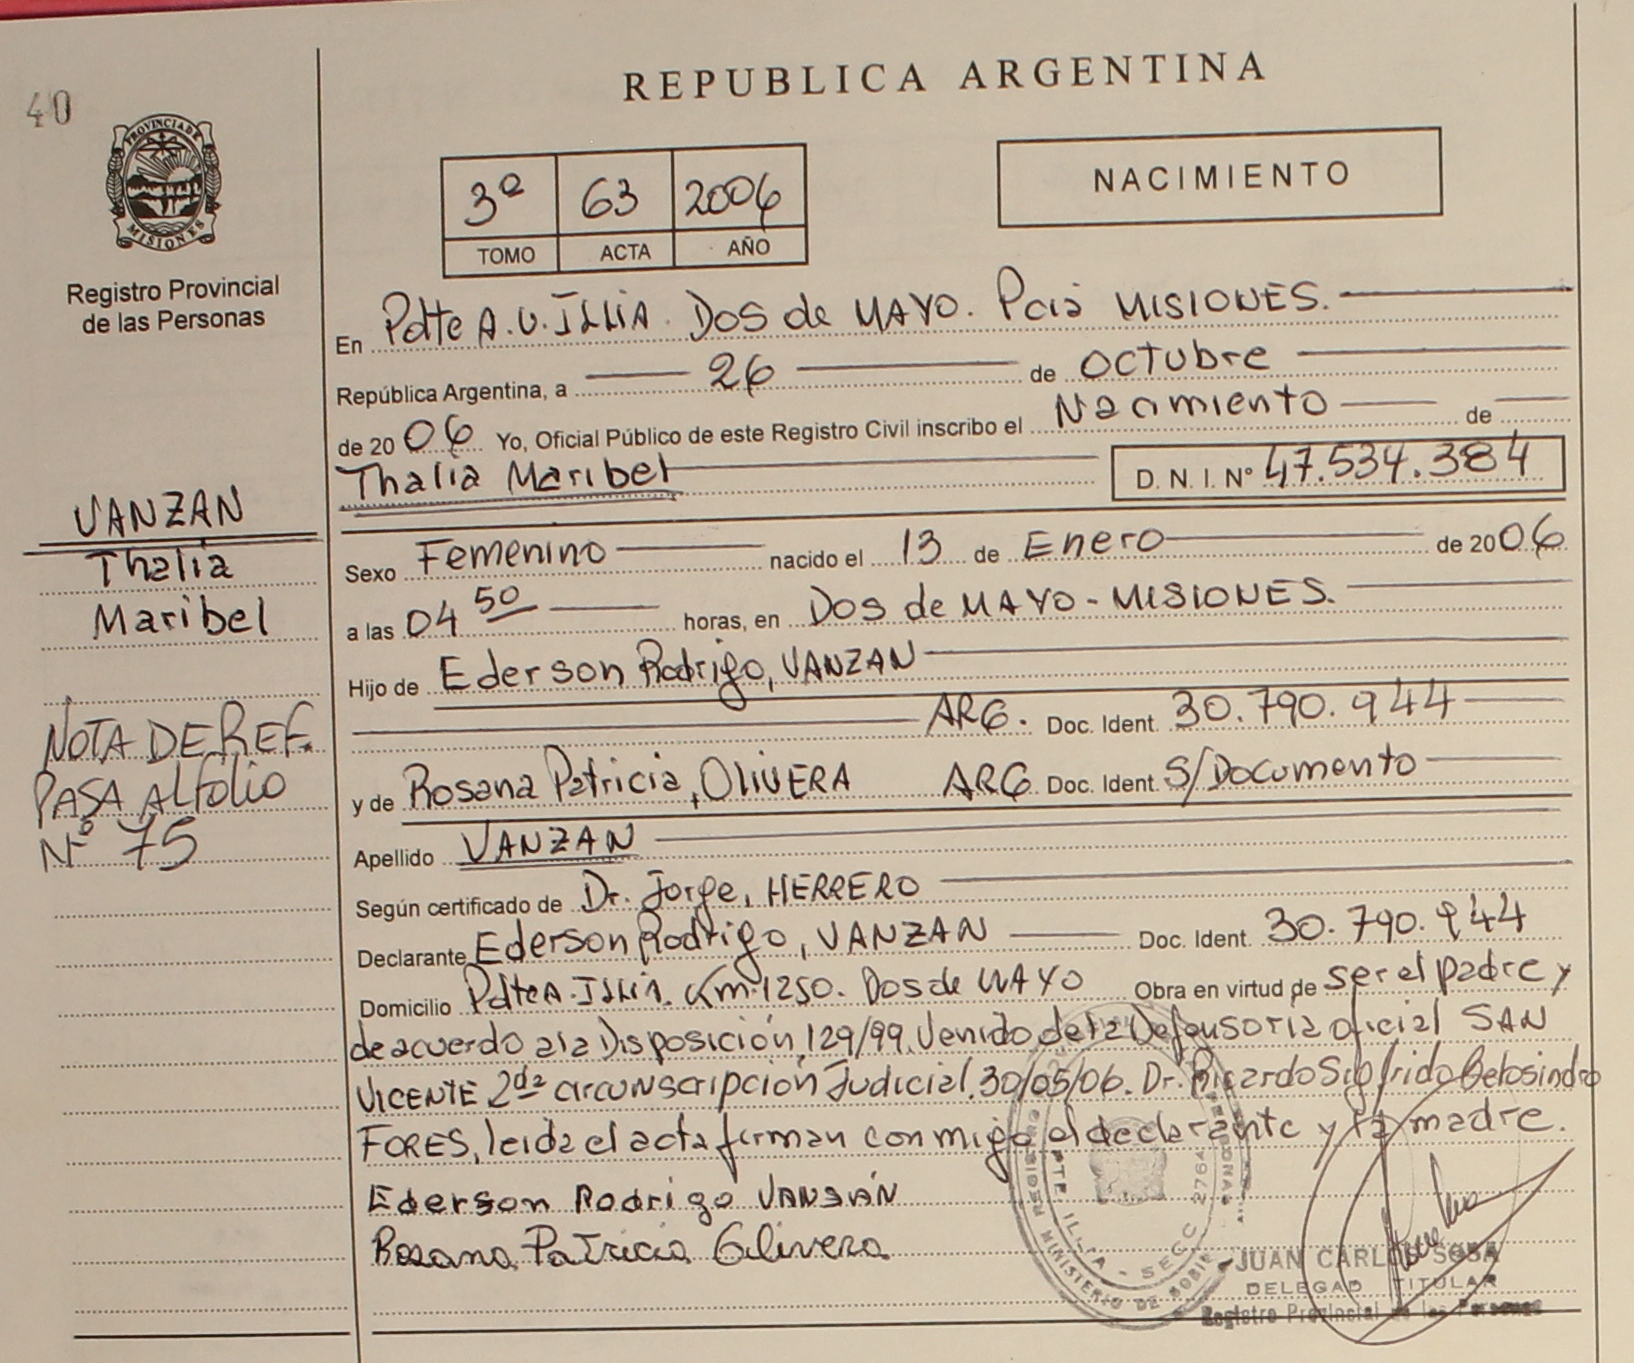 40
REPUBLICA ARGENTINA
PROVINCIA DE
MISIONES
Registro Provincial
de las Personas
3º 63 2006
TOMO ACTA AÑO
NACIMIENTO
En Pdte A.U. ILLIA. Dos de MAYO. Pcia MISIONES.
República Argentina, a 26 de Octubre
de 2006 Yo, Oficial Público de este Registro Civil inscribo el Nacimiento de
Thalia Maribel D. N. I. Nº 47.534.384
VANZAN
Thalia
Maribel
Sexo Femenino nacido el 13 de Enero de 2006
a las 04 50 horas, en Dos de MAYO - MISIONES.
Hijo de Ederson Rodrigo, VANZAN
ARG. Doc. Ident. 30.790.944
y de Rosana Patricia, OLIVERA ARG Doc. Ident. S/Documento
NOTA DE REF.
PASA AL folio
Nº 75
Apellido VANZAN
Según certificado de Dr. Jorge, HERRERO
Declarante Ederson Rodrigo, VANZAN Doc. Ident. 30.790.944
Domicilio Pdte A. Illia. Km. 1250. Dos de MAYO Obra en virtud de ser el padre y
de acuerdo a la Disposición, 129/99. Venido de la Defensoria oficial SAN
VICENTE 2da circunscripción Judicial. 30/05/06. Dr. Ricardo Sigfrido
FORES, leida el acta firman con migo el declarante y la madre.
Ederson Rodrigo VANSAN
Rosana Patricia Olivera
PTE ILLIA - SECC 2764
MINISTERIO DE
JUAN CARLOS SOSA
DELEGAD TITULAR
Registro Provincial de las Personas